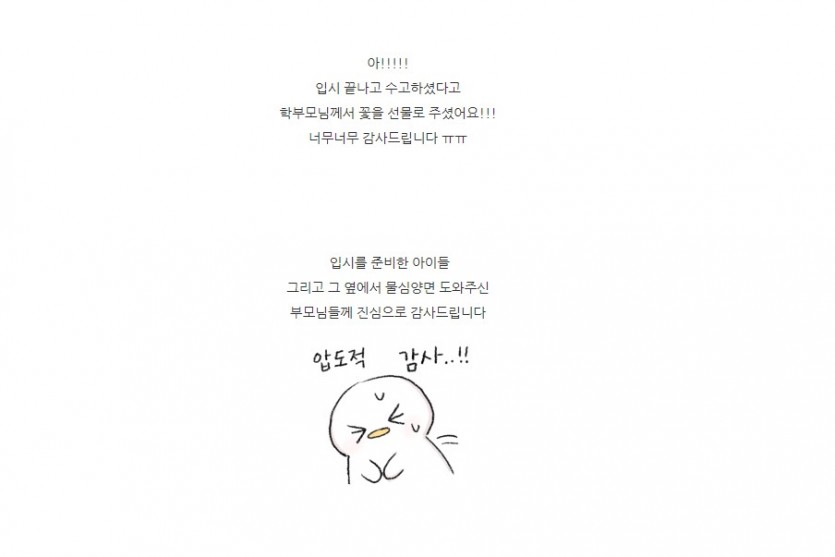 아!!!!!
입시 끝나고 수고하셨다고
학부모님께서 꽃을 선물로 주셨어요!!!
너무너무 감사드립니다 ㅠㅠ
입시를 준비한 아이들
그리고 그 옆에서 물심양면 도와주신
부모님들께 진심으로 감사드립니다
압도적 감사..!!